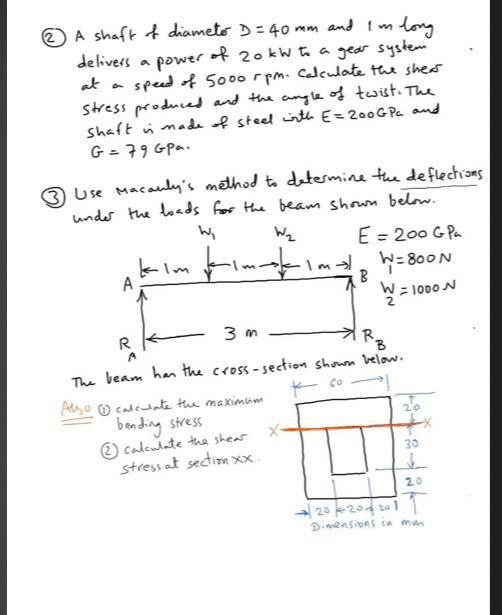 ② A shaft of diameter D = 40 mm and 1 m long
delivers a power of 20 kW to a gear system
at a speed of 5000 rpm. Calculate the shear
stress produced and the angle of twist. The
shaft is made of steel with E = 200 GPa and
G = 79 GPa.
③ Use Macauly's method to determine the deflections
under the loads for the beam shown below.
W1 W2 E = 200 GPa
1m 1m 1m W1 = 800 N
A B
W2 = 1000 N
3 m
RA RB
The beam has the cross-section shown below.
60
Also ① calculate the maximum
bending stress
20
X X
② calculate the shear
stress at section xx.
30
20
20 20 20
Dimensions in mm